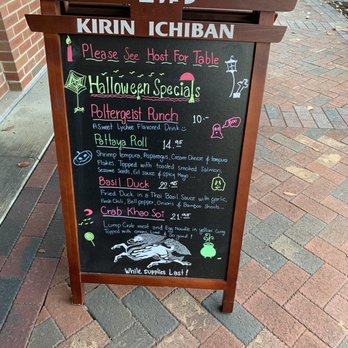 KIRIN ICHIBAN
Please See Host For Table
Halloween Specials
Poltergeist Punch 10.-
A Sweet Lychee Flavored Drink
Pattaya Roll 14.95
Shrimp tempura, Asparagus, Cream Cheese & tempura
Flakes. Topped with toasted smoked Salmon,
Sesame Seeds, Eel sauce & Spicy Mayo
Basil Duck 22.95
Fried Duck in a Thai Basil Sauce with garlic,
Fresh Chili, Bell pepper, Onions & Bamboo Shoots
Crab Khao Soi 21.95
Lump Crab meat and Egg Noodle in yellow Curry
Topped with onion, Lime & So good!
While Supplies Last!